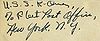 U.S.S. K-
% Post Office,
New York. N.Y.